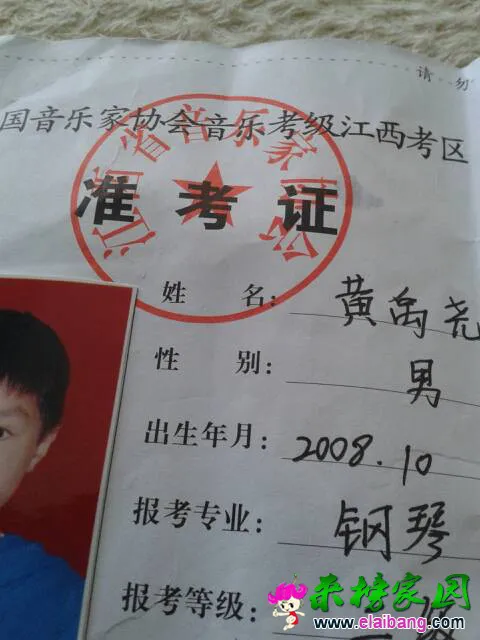 请 勿
国音乐家协会音乐考级江西考区
江西省音乐家协会
准考证
姓 名: 黄禹尧
性 别: 男
出生年月: 2008.10
报考专业: 钢琴
报考等级:
来榜家园
www.elaibang.com